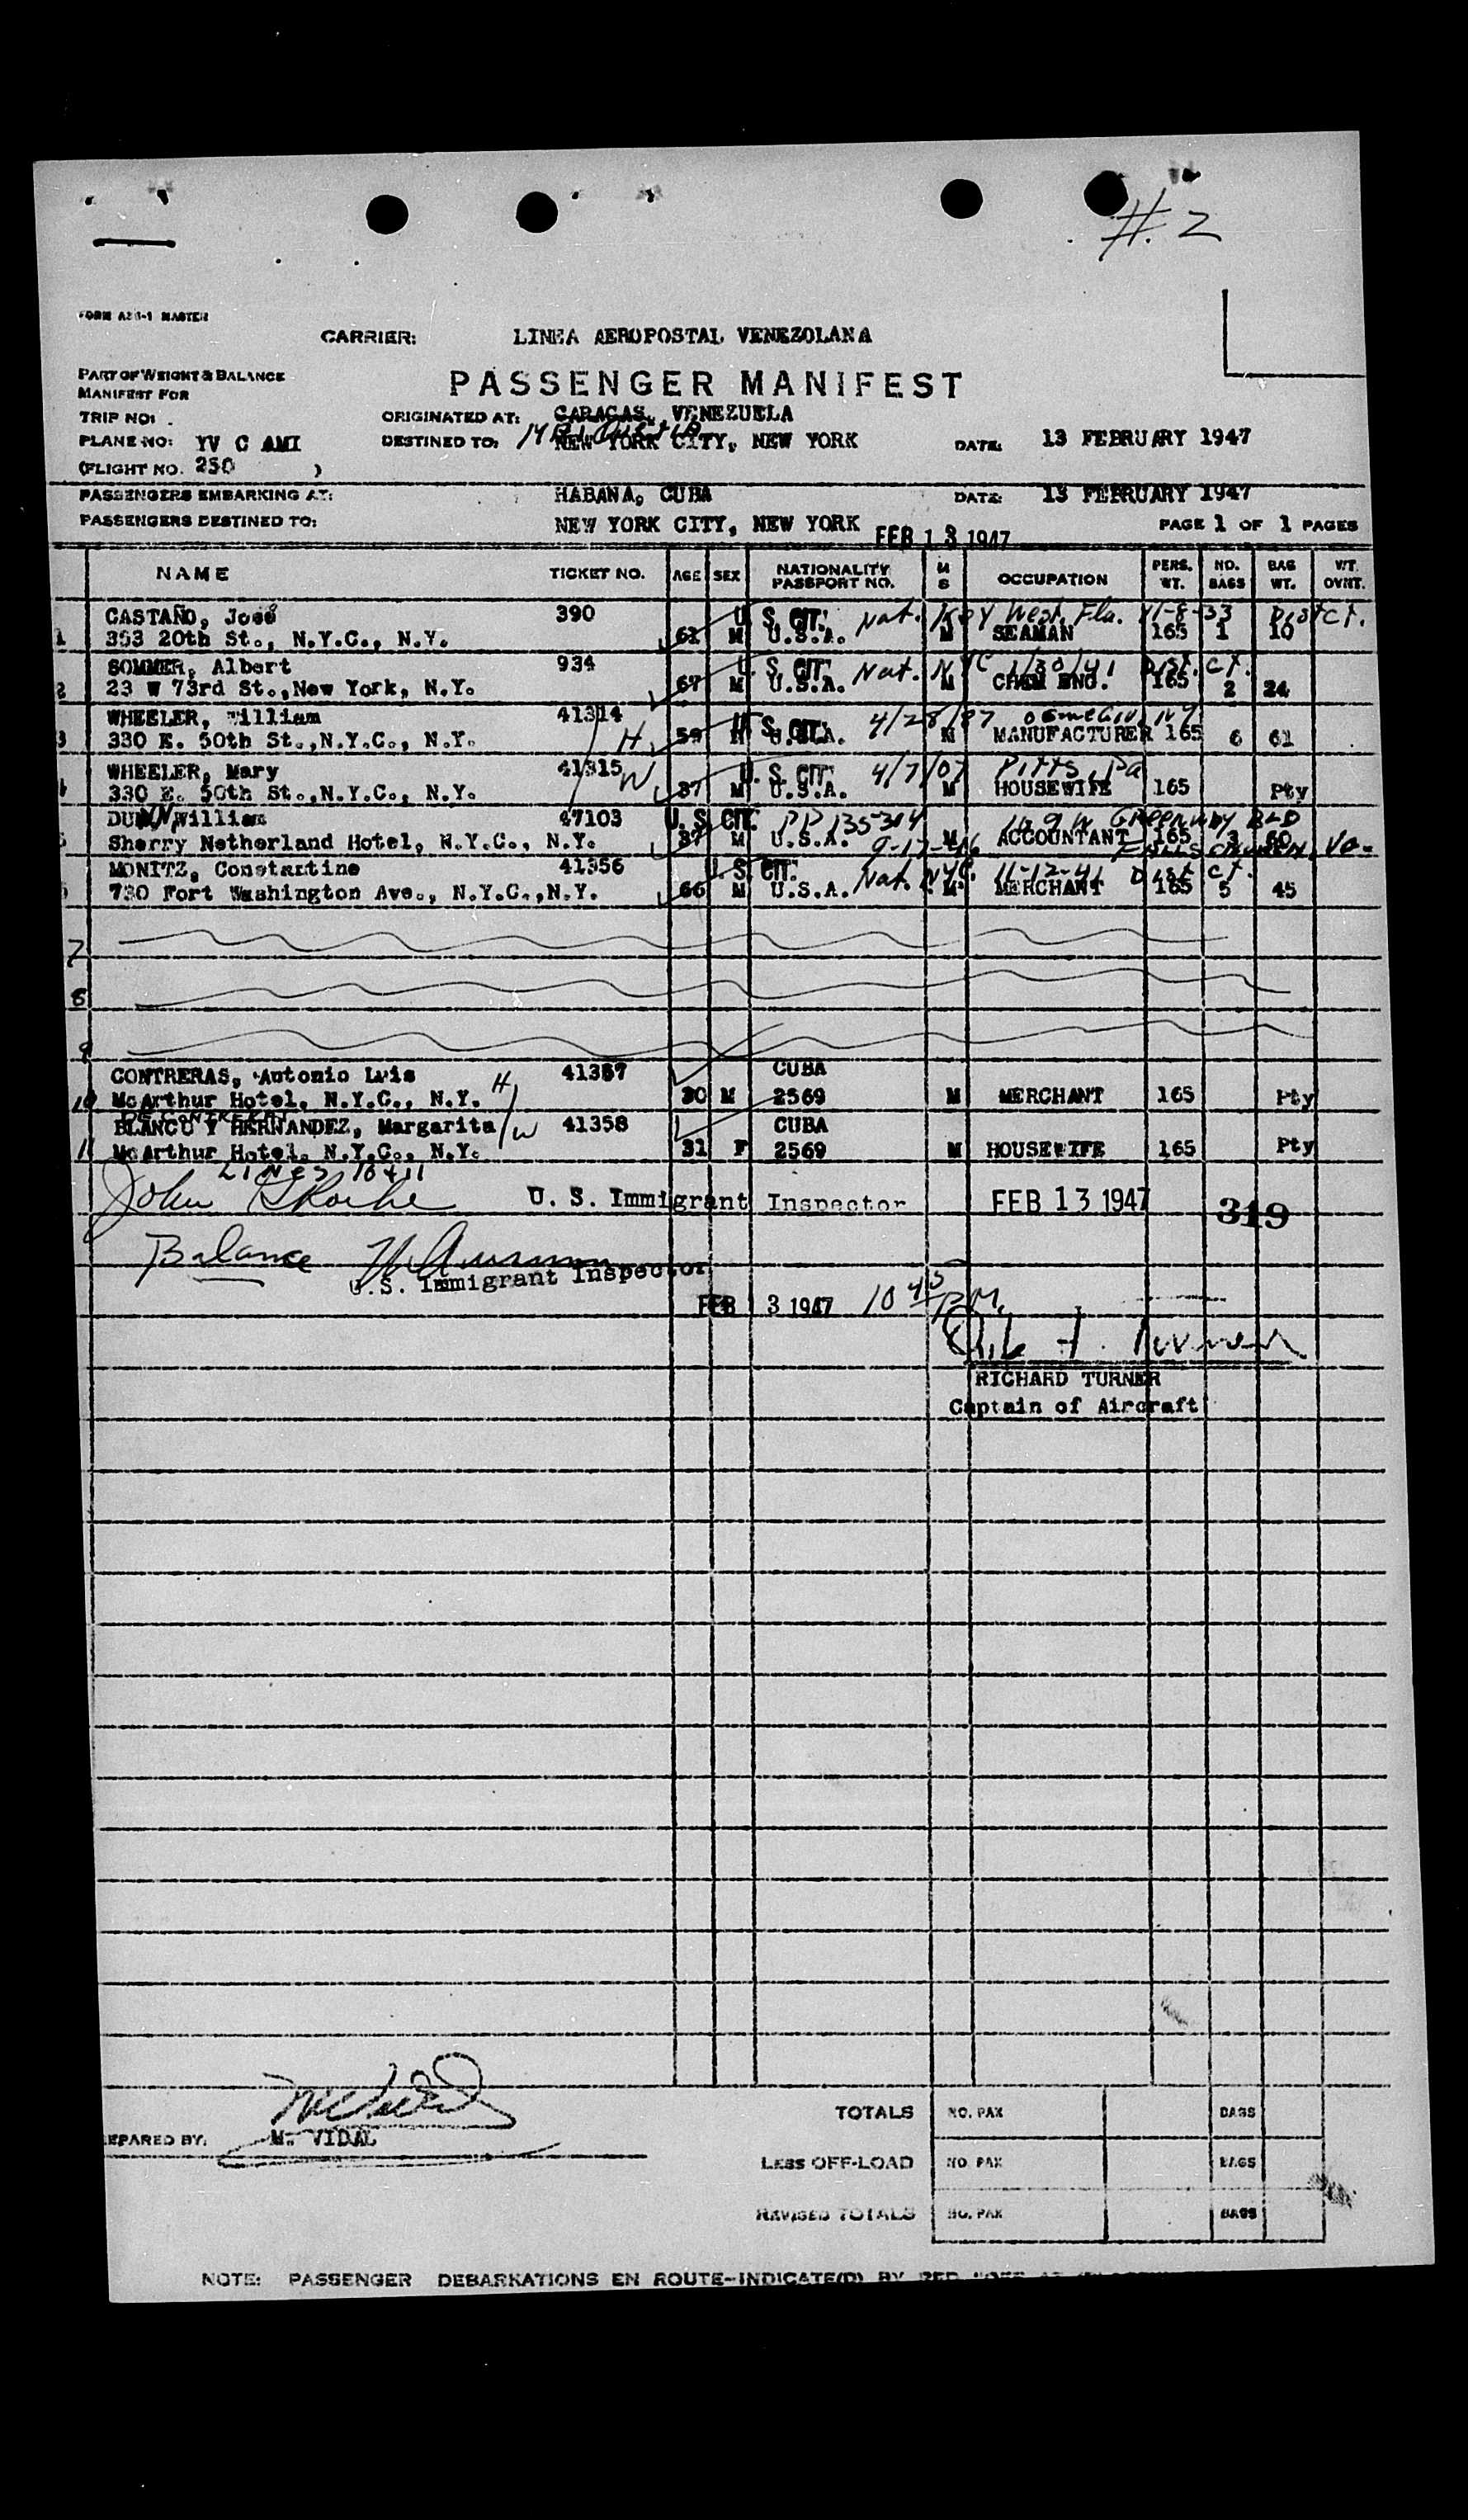 #. 2
FORM MASTER
CARRIER: LINEA AEROPOSTAL VENEZOLANA
PART OF WEIGHT & BALANCE
MANIFEST FOR
PASSENGER MANIFEST
TRIP NO: ORIGINATED AT: CARACAS, VENEZUELA
PLANE NO: YV C AMI DESTINED TO: NEW YORK CITY, NEW YORK DATE: 13 FEBRUARY 1947
(FLIGHT NO. 250 )
PASSENGERS EMBARKING AT: HABANA, CUBA DATE: 13 FEBRUARY 1947
PASSENGERS DESTINED TO: NEW YORK CITY, NEW YORK FEB 13 1947 PAGE 1 OF 1 PAGES
NAME TICKET NO. AGE SEX NATIONALITY PASSPORT NO. M S OCCUPATION PERS. WT. NO. BAGS BAG WT. WT. OVRT.
CASTAÑO, José 390 U. S. CIT. Nat. Key West, Fla. 11-8-33 Dist Ct.
1 353 20th St., N.Y.C., N.Y. 61 M U.S.A. M SEAMAN 165 1 10
SOMMER, Albert 934 U. S. CIT. Nat. NYC 1/30/41 Dist. Ct.
2 23 W 73rd St., New York, N.Y. 67 M U.S.A. M CHEM ENG. 165 2 24
WHEELER, William 41314 U. S. CIT. 4/28/87 NY
3 330 E. 50th St., N.Y.C., N.Y. H 59 M U.S.A. M MANUFACTURER 165 6 61
WHEELER, Mary 41315 W U. S. CIT. 4/7/07 Pitts, Pa
330 E. 50th St., N.Y.C., N.Y. 37 M U.S.A. M HOUSEWIFE 165 Pty
DUNN, William 47103 U. S. CIT. PP 135314 Greenway Bld
Sherry Netherland Hotel, N.Y.C., N.Y. 37 M U.S.A. 9-17-46 M ACCOUNTANT 165 3 60 Falls Church, Va.
MONITZ, Constantine 41356 U. S. CIT. Nat. NYC. 11-12-41 Dist Ct.
730 Fort Washington Ave., N.Y.C., N.Y. 66 M U.S.A. M MERCHANT 165 5 45
7
8
9
CONTRERAS, Antonio Luis 41357 CUBA
10 McArthur Hotel, N.Y.C., N.Y. H 30 M 2569 M MERCHANT 165 Pty
DE CONTRERAS
BLANCO Y HERNANDEZ, Margarita W 41358 CUBA
11 McArthur Hotel, N.Y.C., N.Y. 31 F 2569 M HOUSEWIFE 165 Pty
LINES 10 & 11
John U. S. Immigrant Inspector FEB 13 1947 319
Balance
U.S. Immigrant Inspector
FEB 13 1947 10 45 P.M.
RICHARD TURNER
Captain of Aircraft
TOTALS NO. PAX BAGS
PREPARED BY: M. VIDAL
LESS OFF-LOAD NO. PAX BAGS
REVISED TOTALS NO. PAX BAGS
NOTE: PASSENGER DEBARKATIONS EN ROUTE-INDICATE(D) BY RED